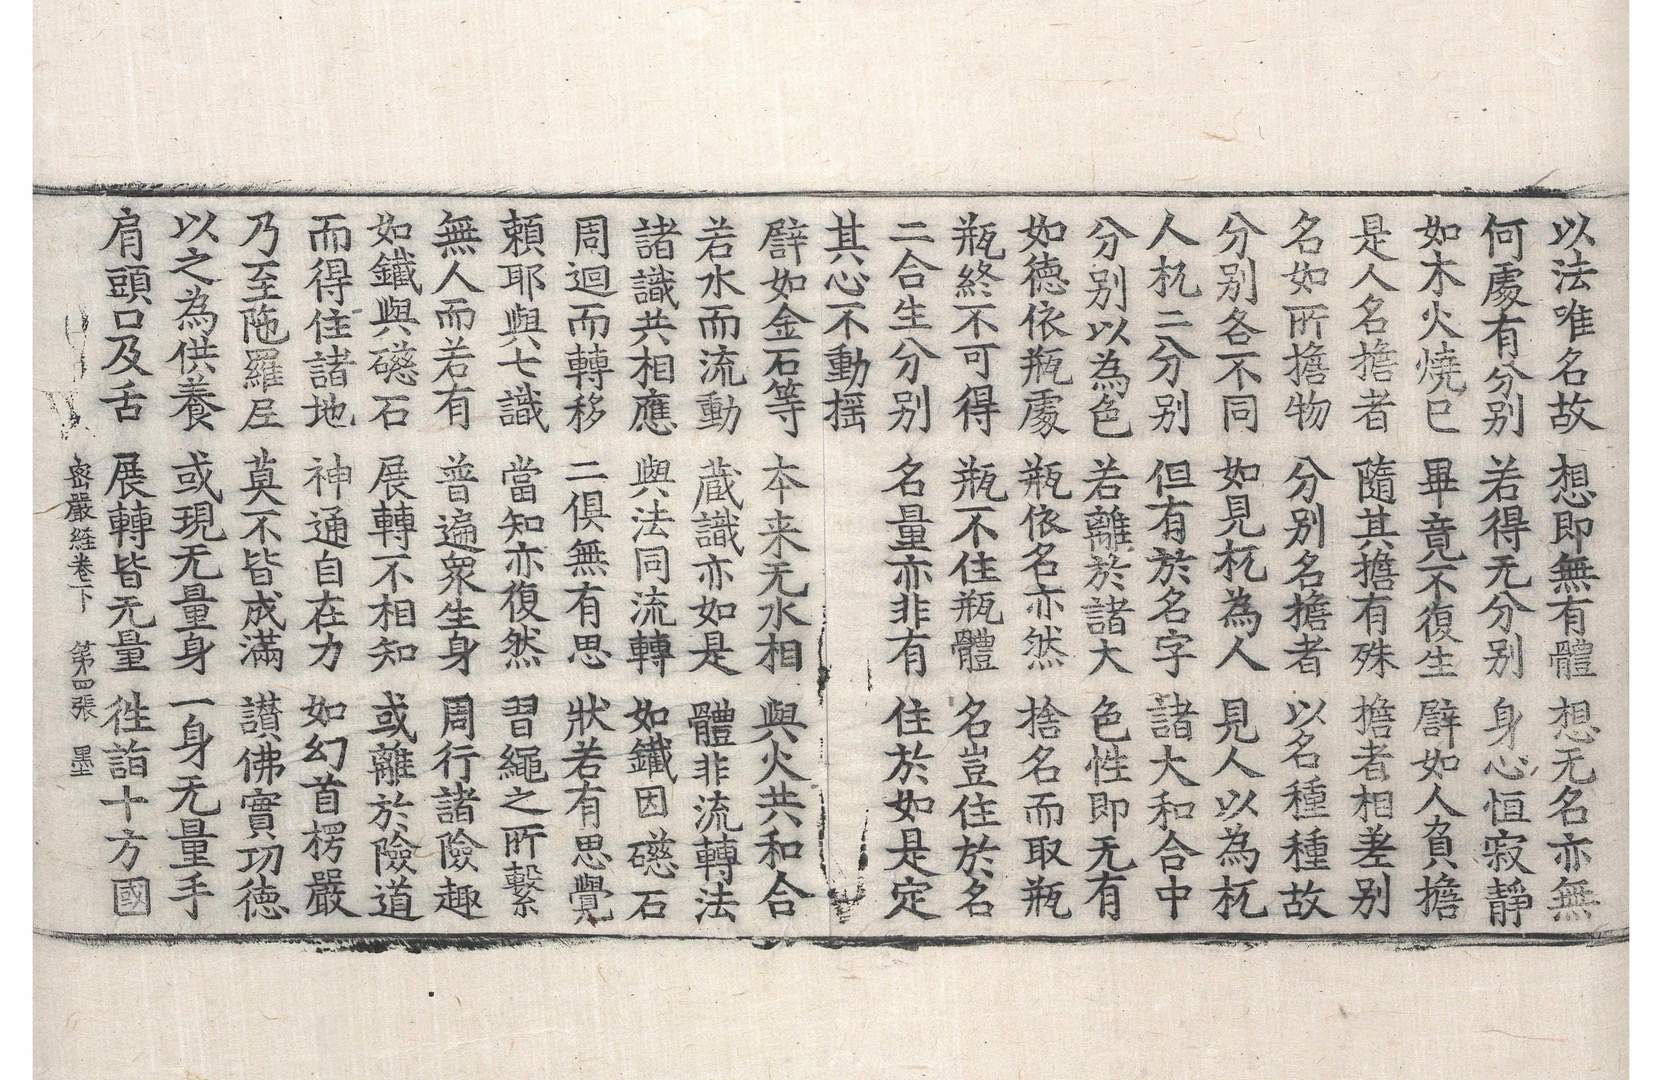 以法唯名故　想即無有體　想无名亦無
何處有分别　若得无分别　身心恒寂靜
如木火燒已　畢竟不復生　譬如人負擔
是人名擔者　隨其擔有殊　擔者相差别
名如所擔物　分别名擔者　以名種種故
分别各不同　如見杌為人　見人以為杌
人杌二分别　但有於名字　諸大和合中
分别以為色　若離於諸大　色性即无有
如德依瓶處　瓶依名亦然　捨名而取瓶
瓶終不可得　瓶不住瓶體　名豈住於名
二合生分别　名量亦非有　住於如是定
其心不動揺
譬如金石等　本来无水相　與火共和合
若水而流動　蔵識亦如是　體非流轉法
諸識共相應　與法同流轉　如鐵因礠石
周迴而轉移　二俱無有思　狀若有思覺
頼耶與七識　當知亦復然　習繩之所繫
無人而若有　普遍衆生身　周行諸險趣
如鐵與礠石　展轉不相知　或離於險道
而得住諸地　神通自在力　如幻首楞嚴
乃至陁羅尼　莫不皆成滿　讃佛實功德
以之為供養　或現无量身　一身无量手
肩頭口及舌　展轉皆无量　徃詣十方國
密嚴経卷下　第四張　墨